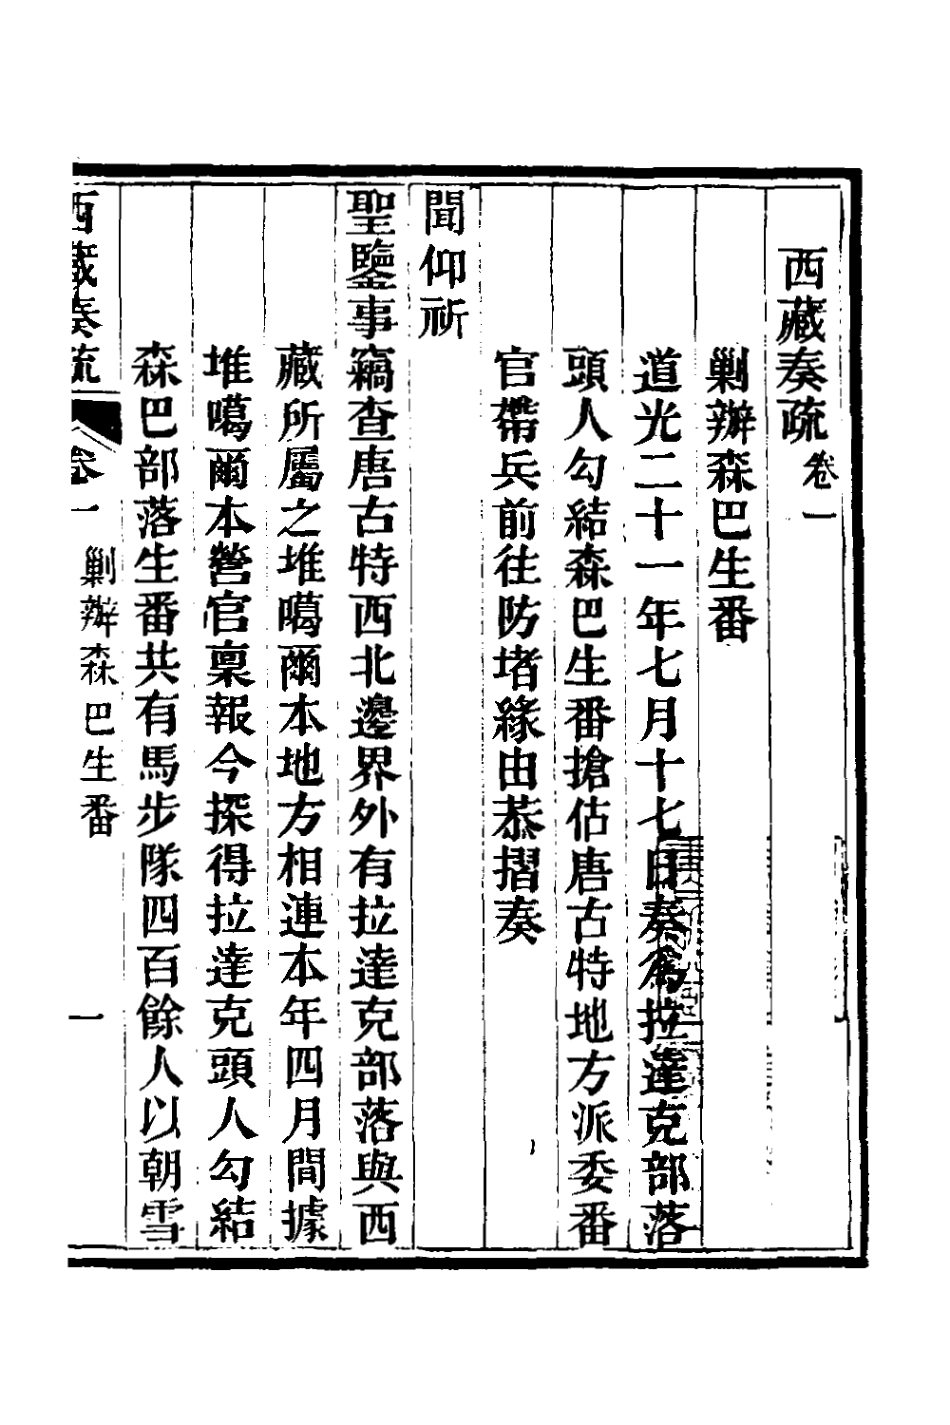 西藏奏疏卷一
剿辦森巴生番
道光二十一年七月十七日奏爲拉達克部落
頭人勾結森巴生番搶佔唐古特地方派委番
官帶兵前往防堵緣由恭摺奏
聞仰祈
聖鑒事竊查唐古特西北邊界外有拉達克部落與西
藏所屬之堆噶爾本地方相連本年四月間據
堆噶爾本營官稟報今探得拉達克頭人勾結
森巴部落生番共有馬步隊四百餘人以朝雪
西藏奏疏 卷一 剿辦森巴生番 一